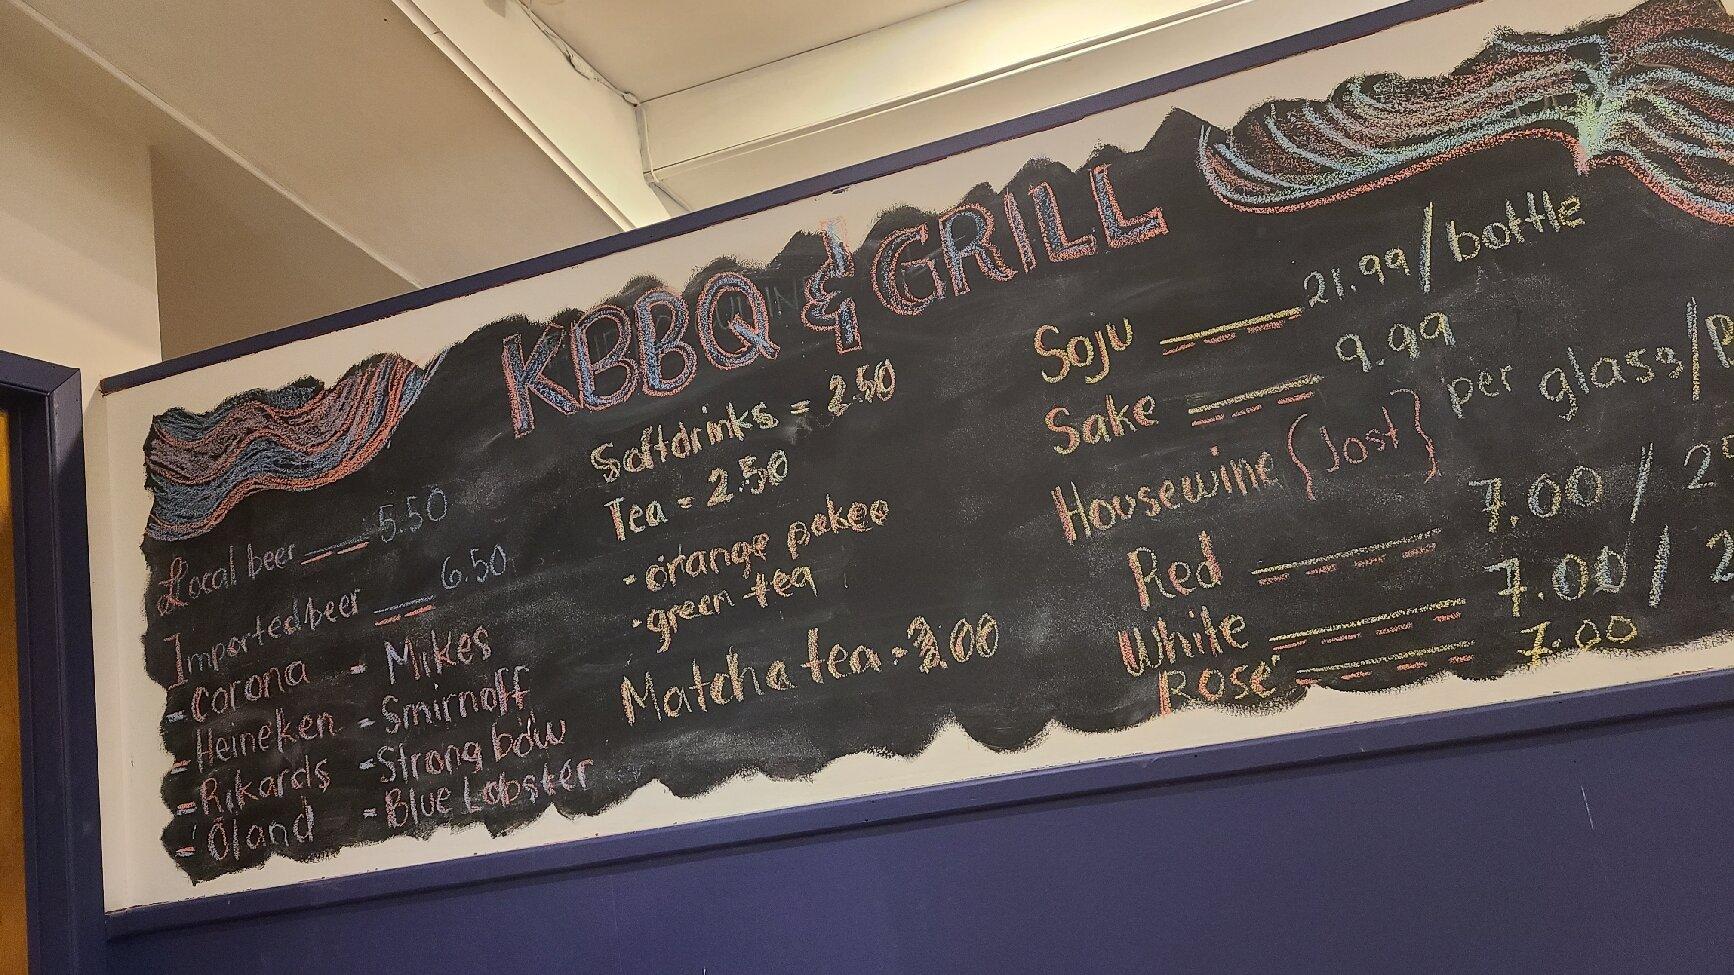 KBBQ & GRILL
Local beer 5.50
Imported beer 6.50
- Corona - Mikes
- Heineken - Smirnoff
- Rikards - Strongbow
- Oland - Blue Lobster
Softdrinks = 2.50
Tea - 2.50
- orange pekoe
- green tea
Matcha tea - 00
Soju 21.99/bottle
Sake 9.99
Housewine {Jost} per glass/
Red 7.00 /
White 7.00 /
Rosé 7.00